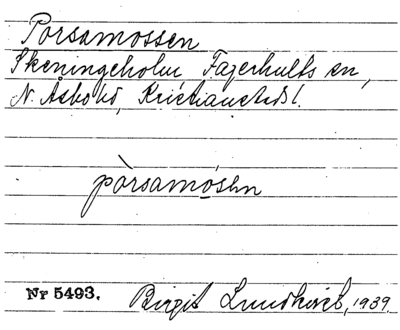 Porsamossen
Skeningeholm, Fagerhults sn,
N. Åsbo hd, Kristianstads l.
pòrsamósən
Nr 5493. Birgit Lundkvist, 1939.